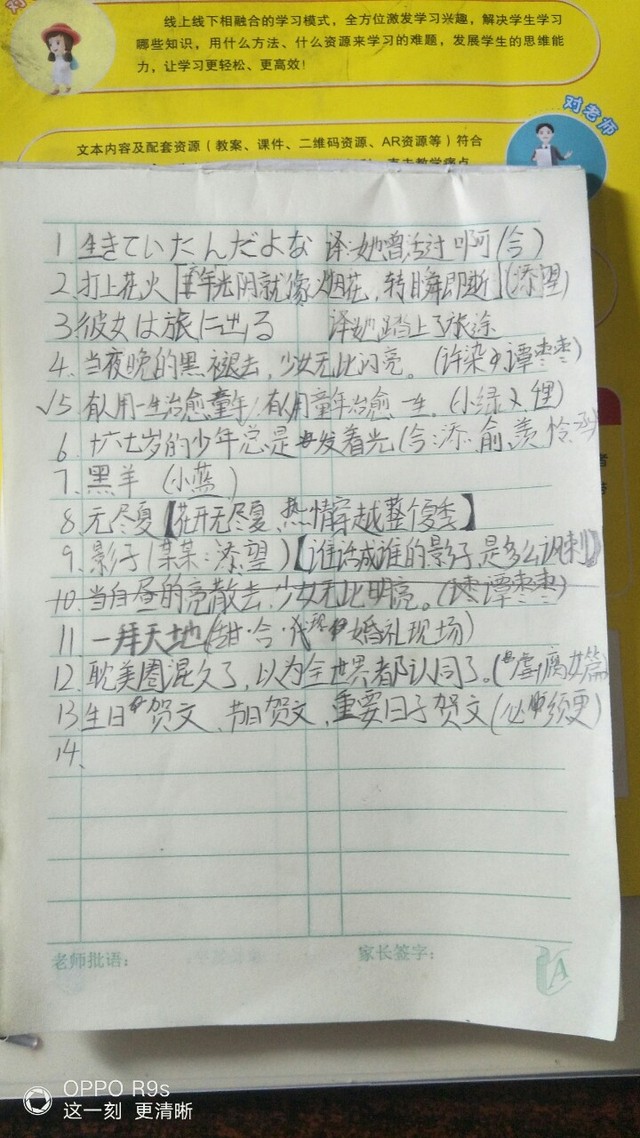 线上线下相融合的学习模式，全方位激发学习兴趣，解决学生学习
哪些知识，用什么方法、什么资源来学习的难题，发展学生的思维能
力，让学习更轻松、更高效！
对老师
文本内容及配套资源（教案、课件、二维码资源、AR资源等）符合
1 生きていたんだよな 译:她曾活过啊(合)
2.打上花火「童年光阴就像烟花，转瞬即逝」(添望)
3.彼女は旅に出る 译她踏上了旅途
4.当夜晚的黑褪去，少女无比闪亮。(许染夕谭枣枣)
√5 有人用一生治愈童年/有人用童年治愈一生.(小绿
6.十六七岁的少年总是发着光(合:添.俞.羡
7.黑羊 (小蓝)
8.无尽夏【花开无尽夏,热情穿越整个夏季】
9.影子(某某:添望)【谁许成谁的影子,是多么讽刺】
10.当白昼的亮散去,少女无比明亮。(谭枣枣)
11 一拜天地(甜·合·婚礼现场)
12.耽美圈混久了,以为全世界都认同了。(虐腐女篇)
13生日贺文、节日贺文,重要日子贺文(必须更)
14、
老师批语: 家长签字:
A
OPPO R9s
这一刻 更清晰